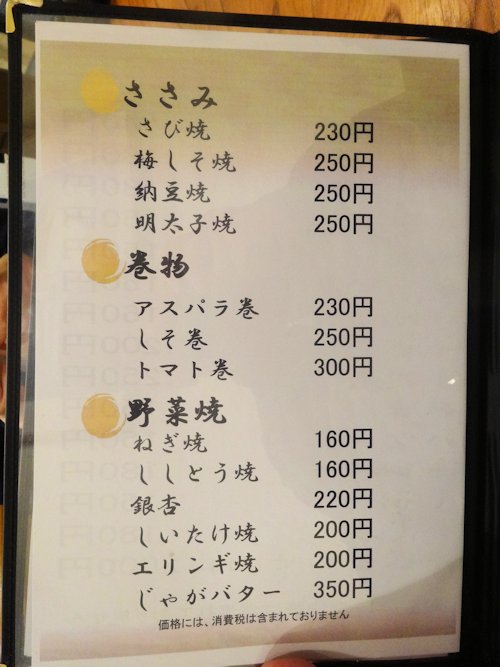 ささみ
さび焼 230円
梅しそ焼 250円
納豆焼 250円
明太子焼 250円
巻物
アスパラ巻 230円
しそ巻 250円
トマト巻 300円
野菜焼
ねぎ焼 160円
ししとう焼 160円
銀杏 220円
しいたけ焼 200円
エリンギ焼 200円
じゃがバター 350円
価格には、消費税は含まれておりません